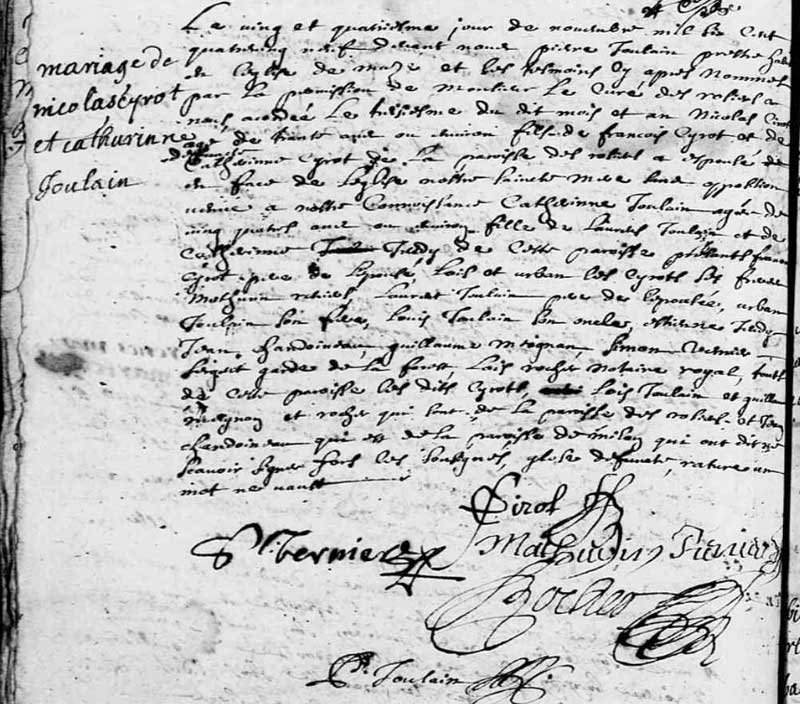 mariage de
nicolas eyrot
et cathurinne
Joulain
Le ving et quatriesme jour de novembre mil six cent
quatrevingt neuf devant nous pierre Toulain prestre
en leglise de et les tesmoins cy apres nommes
par la permission de monsieur Le Curé des rosiers a
nous acordée Le du dit mois et an Nicolas Cirot
age de trente ans ou environ fils de francois Cyrot et de
defunte
Catherinne Cyrot de La paroisse des rosiers a espousé
en face de Leglise nostre sainte mere sans opposition
venue a nostre Connoissance Catherinne Toulain agée de
ving quatre ans ou environ fille de Laurens Toulain et de
Catherinne Tredy de Cette paroisse presents francois
Cyrot pere de Lepoux, Lois et urban les Cyrots ses freres
Mathurin Laurens Toulain pere de Lepousee, urban
Toulain son frere, Louis Toulain son oncle, Estienne Tredy
Jean Chandoineau, guillaume meignan, Simon Vernier
sergent garde de La forest, Lois rocher notaire royal, touts
de Cette paroisse les dits Cyrots, Lois Toulain et guillaume
meignan et rocher qui sont de La paroisse des rosiers et Jean
chandoineau qui est de La paroisse de milon qui ont dit ne
scavoir signer fors les soubsignes, glose defunte, rature un
mot ne vault
Cirol
S. Vernier
Mathurin
Rocher
P. Toulain